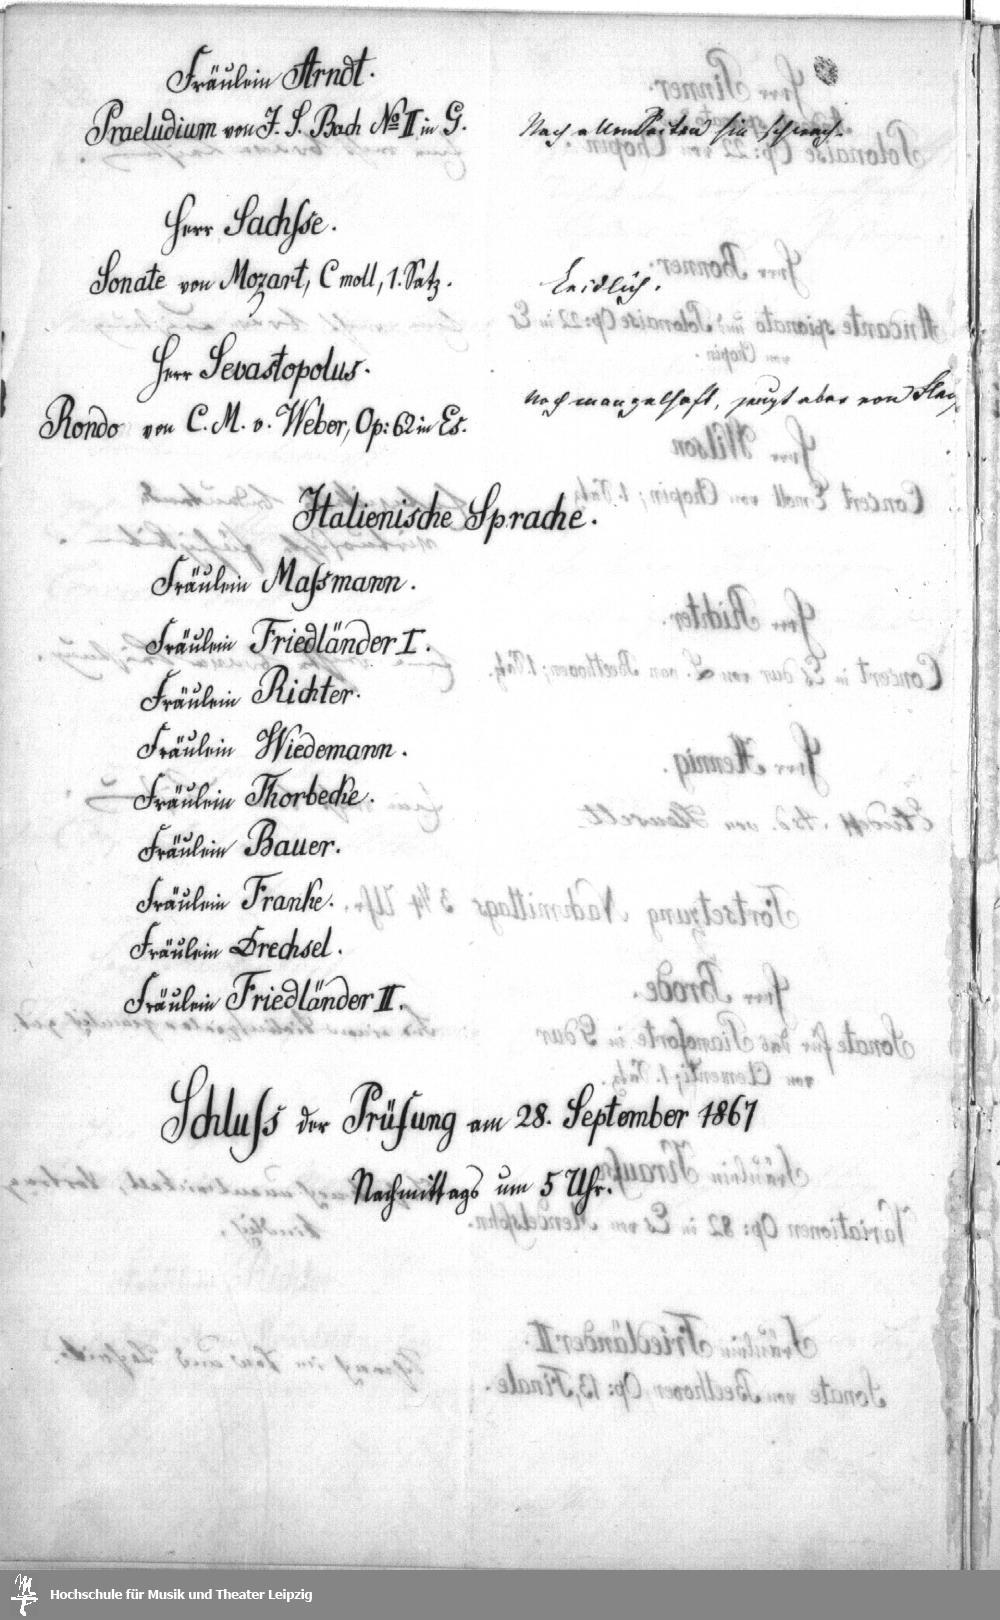 Fräulein Arndt.
Praeludium von J. S. Bach No II in G.
Nach allen Seiten hin schwach.
Herr Sachsse.
Sonate von Mozart, C moll, 1. Satz.
Leidlich.
Herr Sevastopolus.
Noch mangelhaft, zeugt aber von
Rondo von C. M. v. Weber, Op: 62 in Es.
Italienische Sprache.
Fräulein Massmann.
Fräulein Friedländer I.
Fräulein Richter.
Fräulein Wiedemann.
Fräulein Thorbecke.
Fräulein Bauer.
Fräulein Franke.
Fräulein Drechsel.
Fräulein Friedländer II.
Schluss der Prüfung am 28. September 1867
Nachmittags um 5 Uhr.
Hochschule für Musik und Theater Leipzig